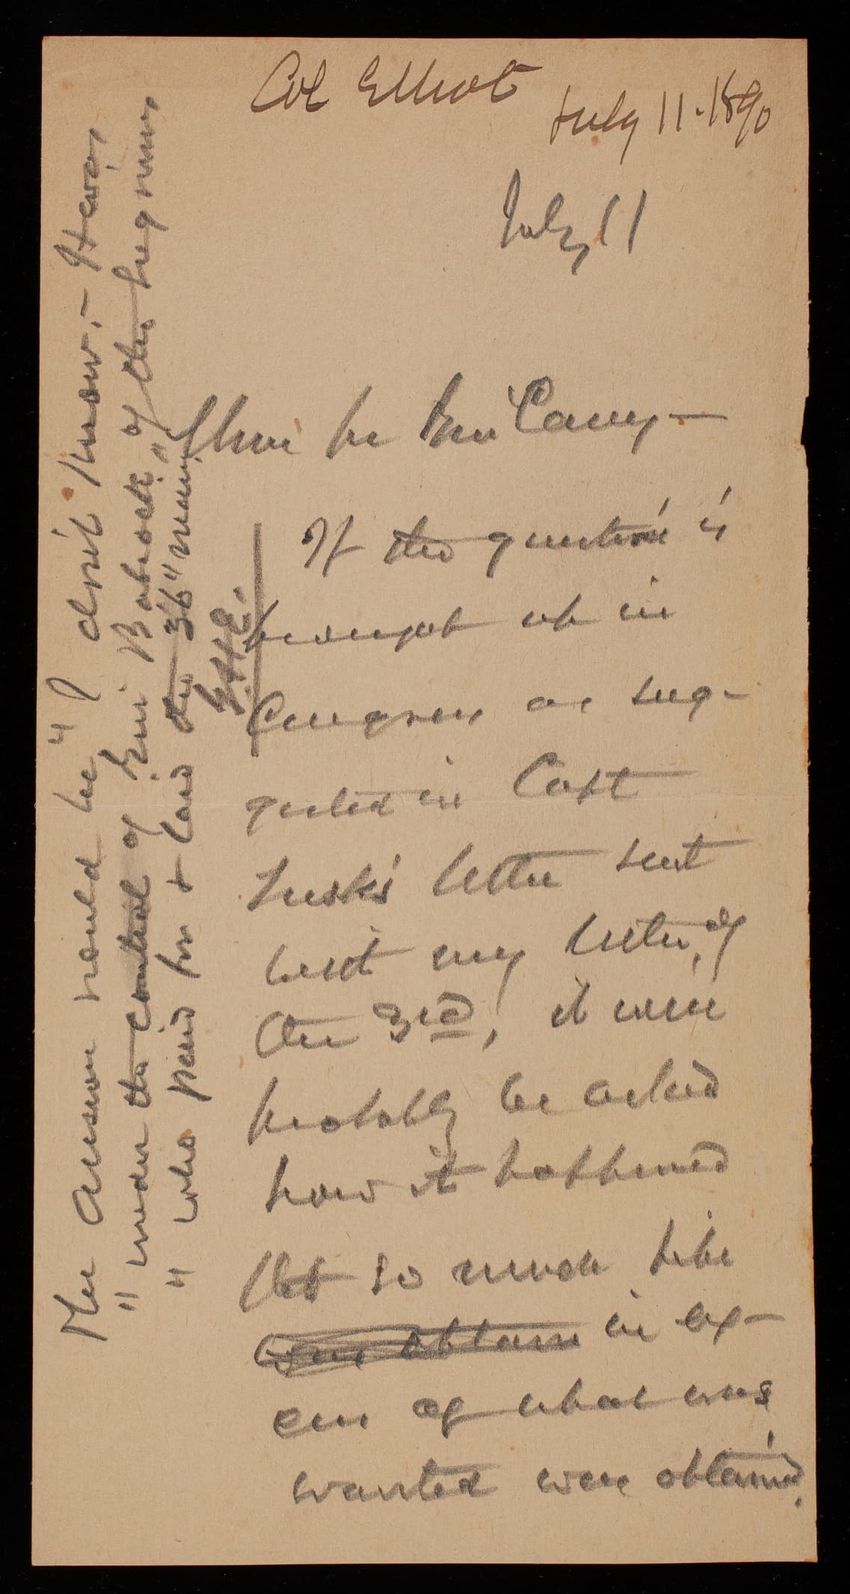 Col Elliot
July 11-1890
July 11
for Gen'l Casey—
If the question is
brought up in
Congress as sug-
gested in Capt
Lusk's letter sent
with my letter of
the 3rd, it will
probably be asked
how it happened
that so much pipe
in ex-
cess of what was
wanted were obtained.
The answer would be "I don't know,— Hains
" under the control of Gen Babcock, of the beginning
" who paid for & laid the 36" main
G.H.E.